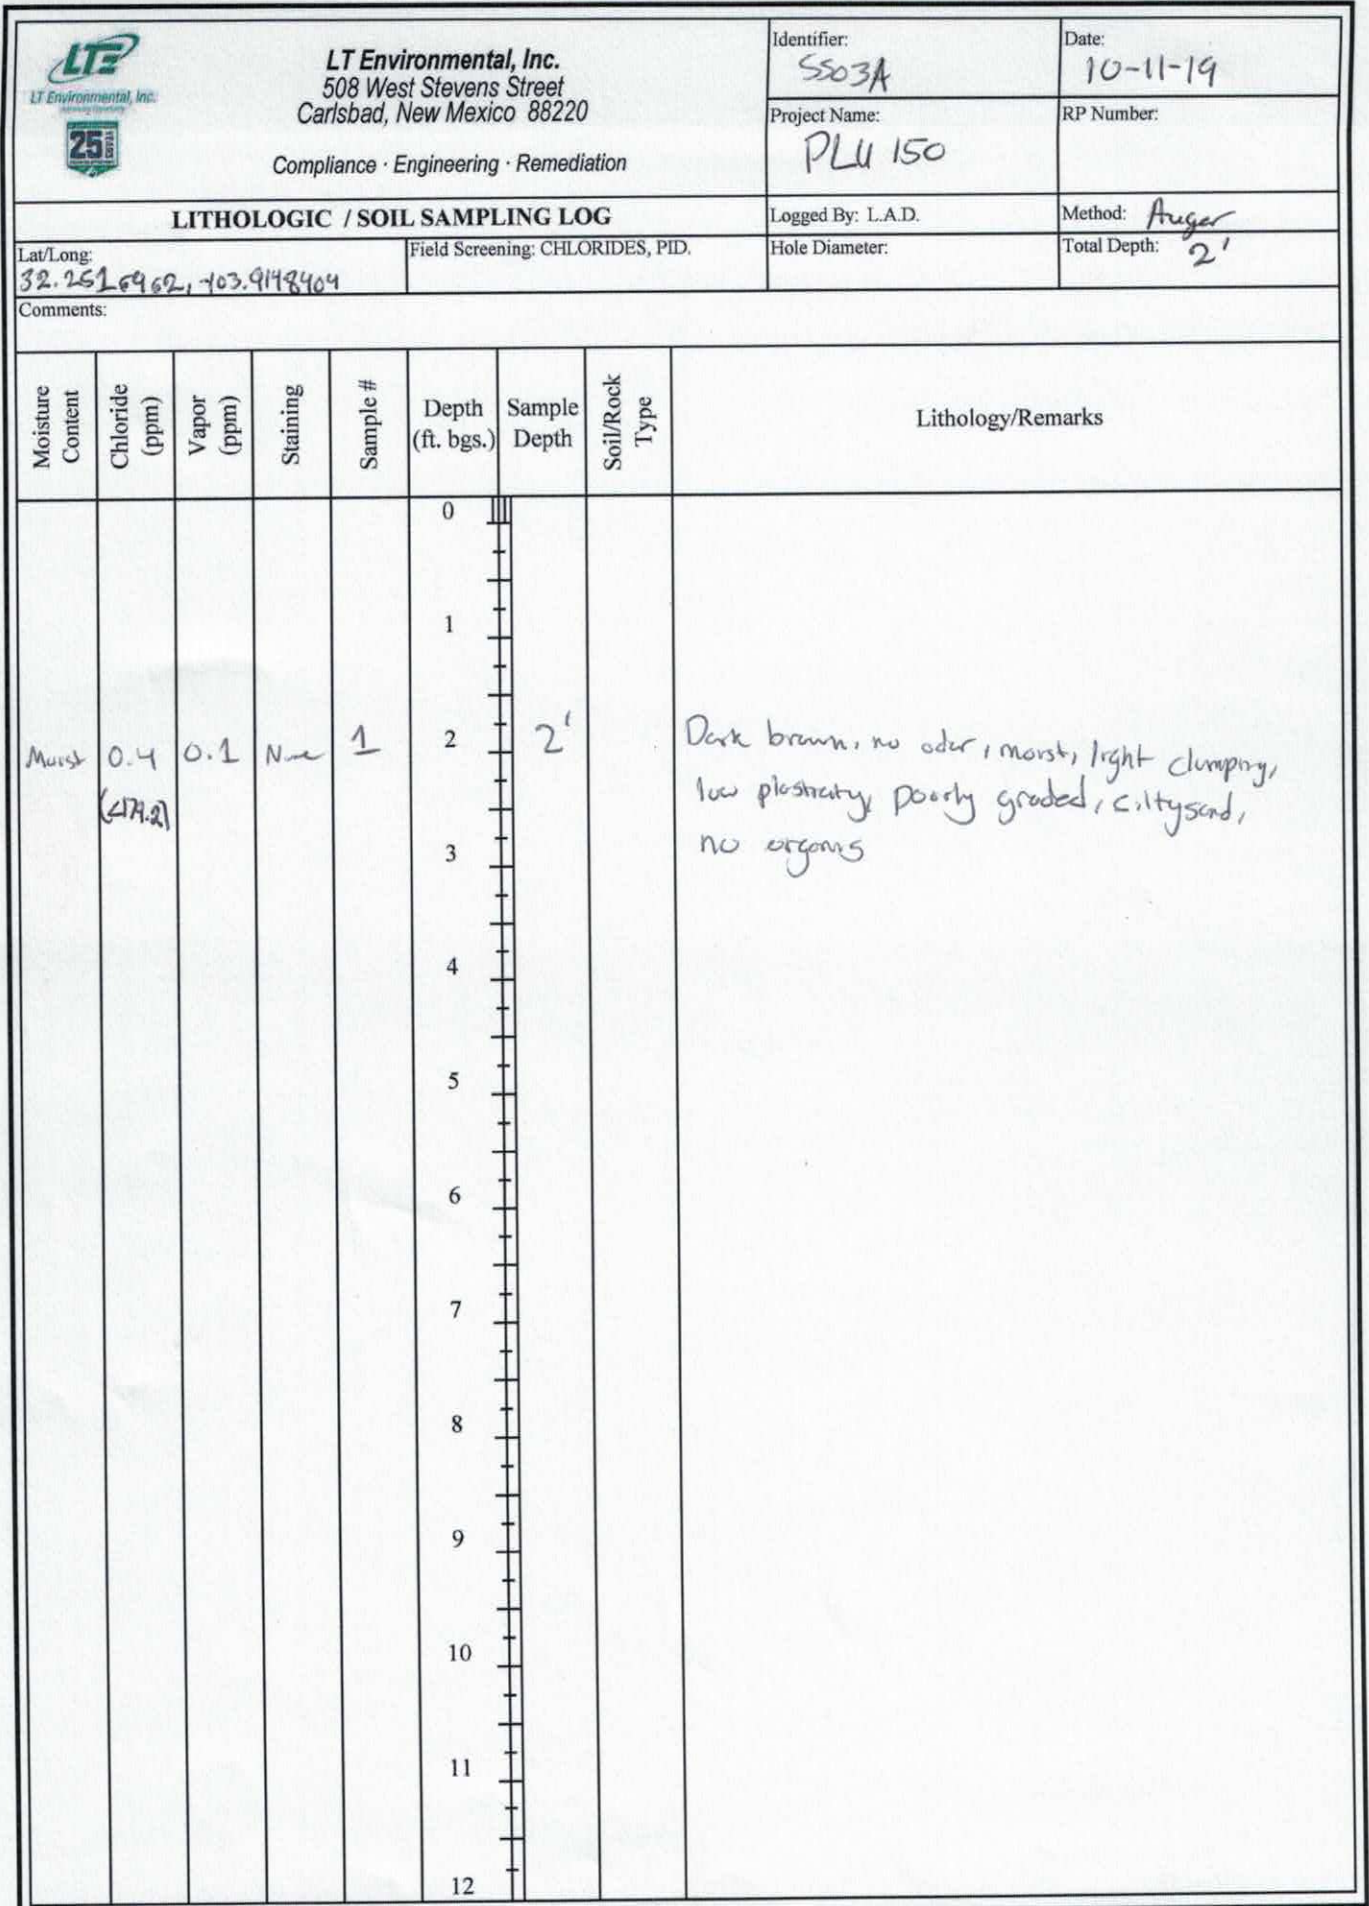 LTE
LT Environmental, Inc.
25
LT Environmental, Inc.
508 West Stevens Street
Carlsbad, New Mexico 88220
Compliance · Engineering · Remediation
Identifier:
SS03A
Date:
10-11-19
Project Name:
PLU 150
RP Number:
LITHOLOGIC / SOIL SAMPLING LOG
Logged By: L.A.D.
Method: Auger
Lat/Long:
32.2516962, -103.9148404
Field Screening: CHLORIDES, PID.
Hole Diameter:
Total Depth: 2'
Comments:
Moisture Content
Chloride (ppm)
Vapor (ppm)
Staining
Sample #
Depth (ft. bgs.)
Sample Depth
Soil/Rock Type
Lithology/Remarks
0
1
Moist 0.4 0.1 None 1 2 2' Dark brown, no odor, moist, light clumping,
(<179.2) low plasticity, poorly graded, siltysand,
no organics
3
4
5
6
7
8
9
10
11
12